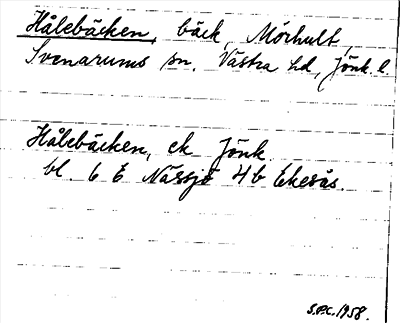 Hålebäcken, bäck, Mörhult,
Svenarums sn. Västra hd, Jönk. l.
Hålebäcken, ek Jönk.
bl. 6 E Nässjö 4b Ekesås.
S.P.C. 1958.